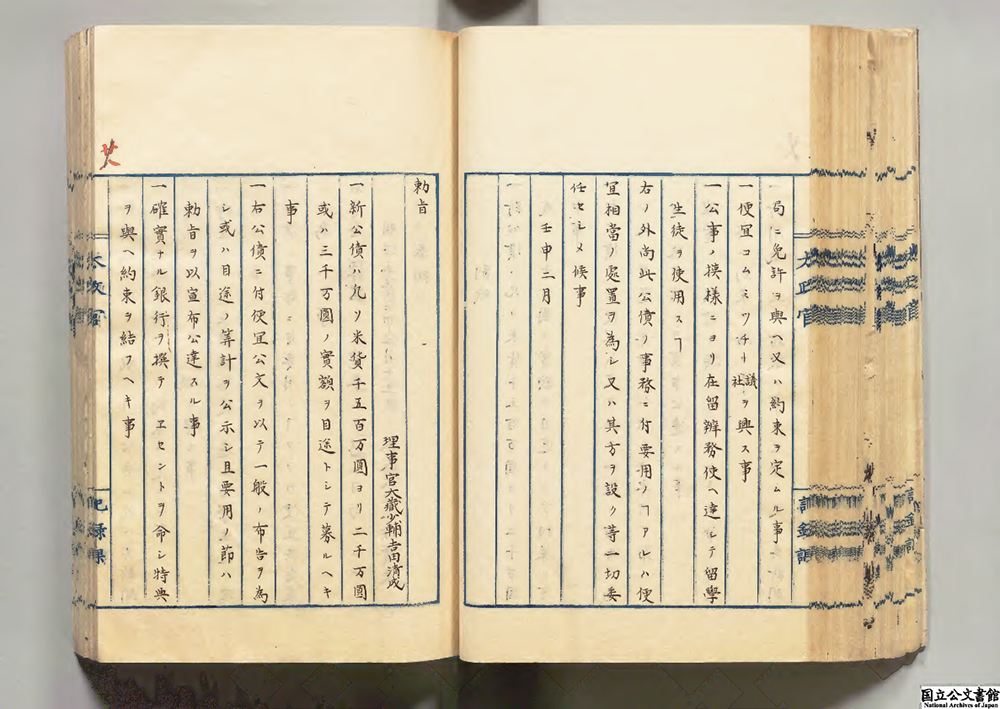 一局ニ免許ヲ與ヘ又ハ約束ヲ定ムル事
一便宜コムミツチー議社ヲ興ス事
一公事ノ摸樣ニヨリ在留辨務使ヘ達シテ留學
生徒ヲ使用スヿ
右ノ外尚此公債ノ事務ニ付要用ノヿアルハ便
宜相當ノ處置ヲ為シ又ハ其方ヲ設ク等一切委
任セシメ候事
壬申二月
勅旨
理事官大藏少輔吉田清成
一新公債ハ凡ソ米貨千五百万圓ヨリ二千万圓
或ハ三千万圓ノ實額ヲ目途トシテ募ルヘキ
事
一右公債ニ付便宜公文ヲ以テ一般ノ布告ヲ為
シ或ハ目途ノ筭計ヲ公示シ且要用ノ節ハ
勅旨ヲ以宣布公達スル事
一確實ナル銀行ヲ撰テエセントヲ命シ特典
ヲ與ヘ約束ヲ結フヘキ事
太政官
記録課
国立公文書館
National Archives of Japan